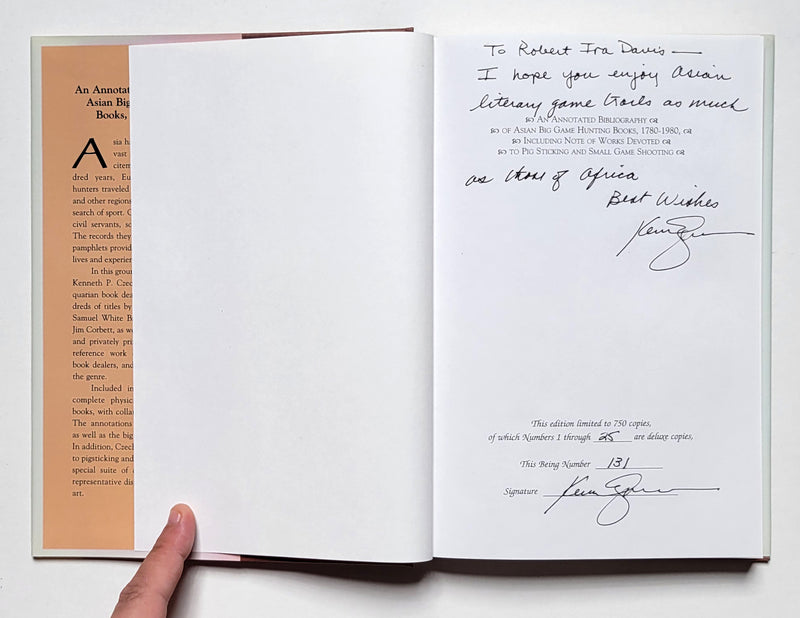 An Annotat
Asian Big
Books,
Asia ha
vast
citem
dred years, Eu
hunters traveled
and other regions
search of sport. C
civil servants, sc
The records they
pamphlets provid
lives and experien
In this groun
Kenneth P. Czec
quarian book dea
dreds of titles by
Samuel White B
Jim Corbett, as we
and privately pri
reference work
book dealers, and
the genre.
Included in
complete physic
books, with colla
The annotations
as well as the big
In addition, Czech
to pigsticking and
special suite of
representative dis
art.
To Robert Ira Davis —
I hope you enjoy Asian
literary game trails as much
An Annotated Bibliography
of Asian Big Game Hunting Books, 1780-1980,
Including Note of Works Devoted
to Pig Sticking and Small Game Shooting
as those of Africa
Best Wishes
This edition limited to 750 copies,
of which Numbers 1 through 25 are deluxe copies,
This Being Number 131
Signature